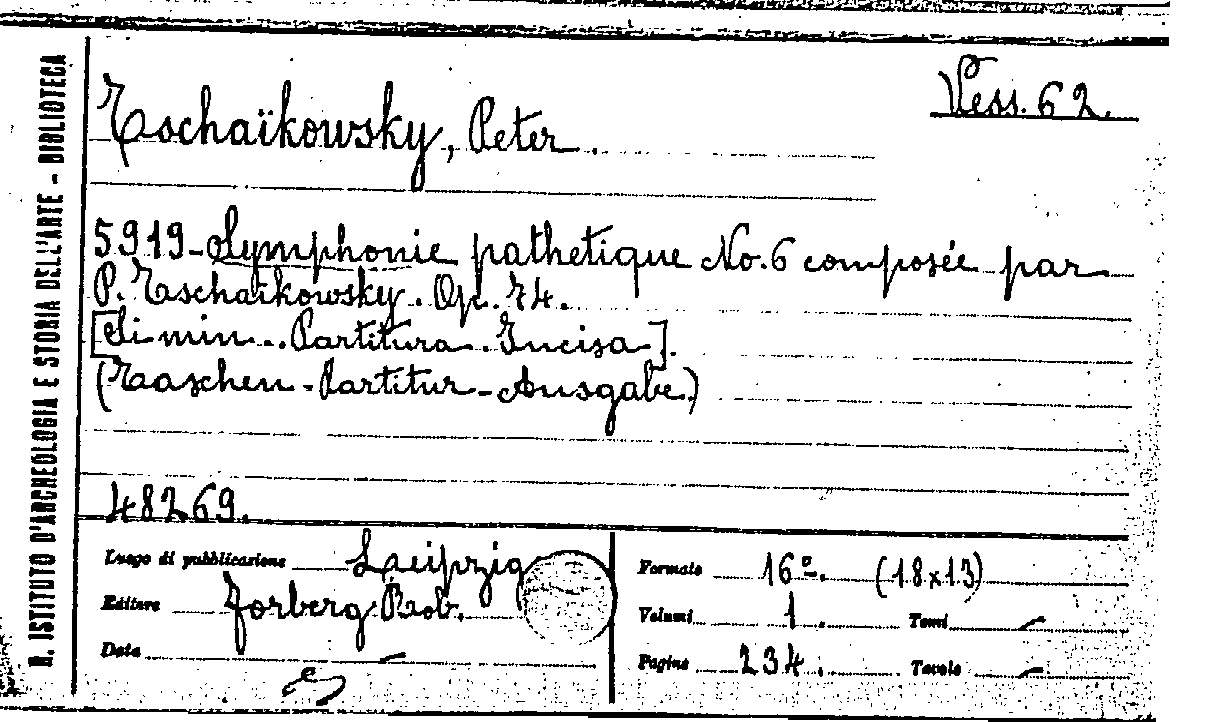 R. ISTITUTO D'ARCHEOLOGIA E STORIA DELL'ARTE - BIBLIOTECA
Vess. 62.
Tschaïkowsky, Peter.
5919 - Symphonie pathetique No. 6 composée par
P. Tschaïkowsky. Op. 74.
[Si min. . Partitura. Incisa].
(Taschen - Partitur - Ausgabe.)
48269.
Luogo di pubblicazione Leipzig
Editore Forberg Rob.
Data —
Formato 16º. (18x13)
Volumi 1. Tomi —
Pagine 234. Tavole —